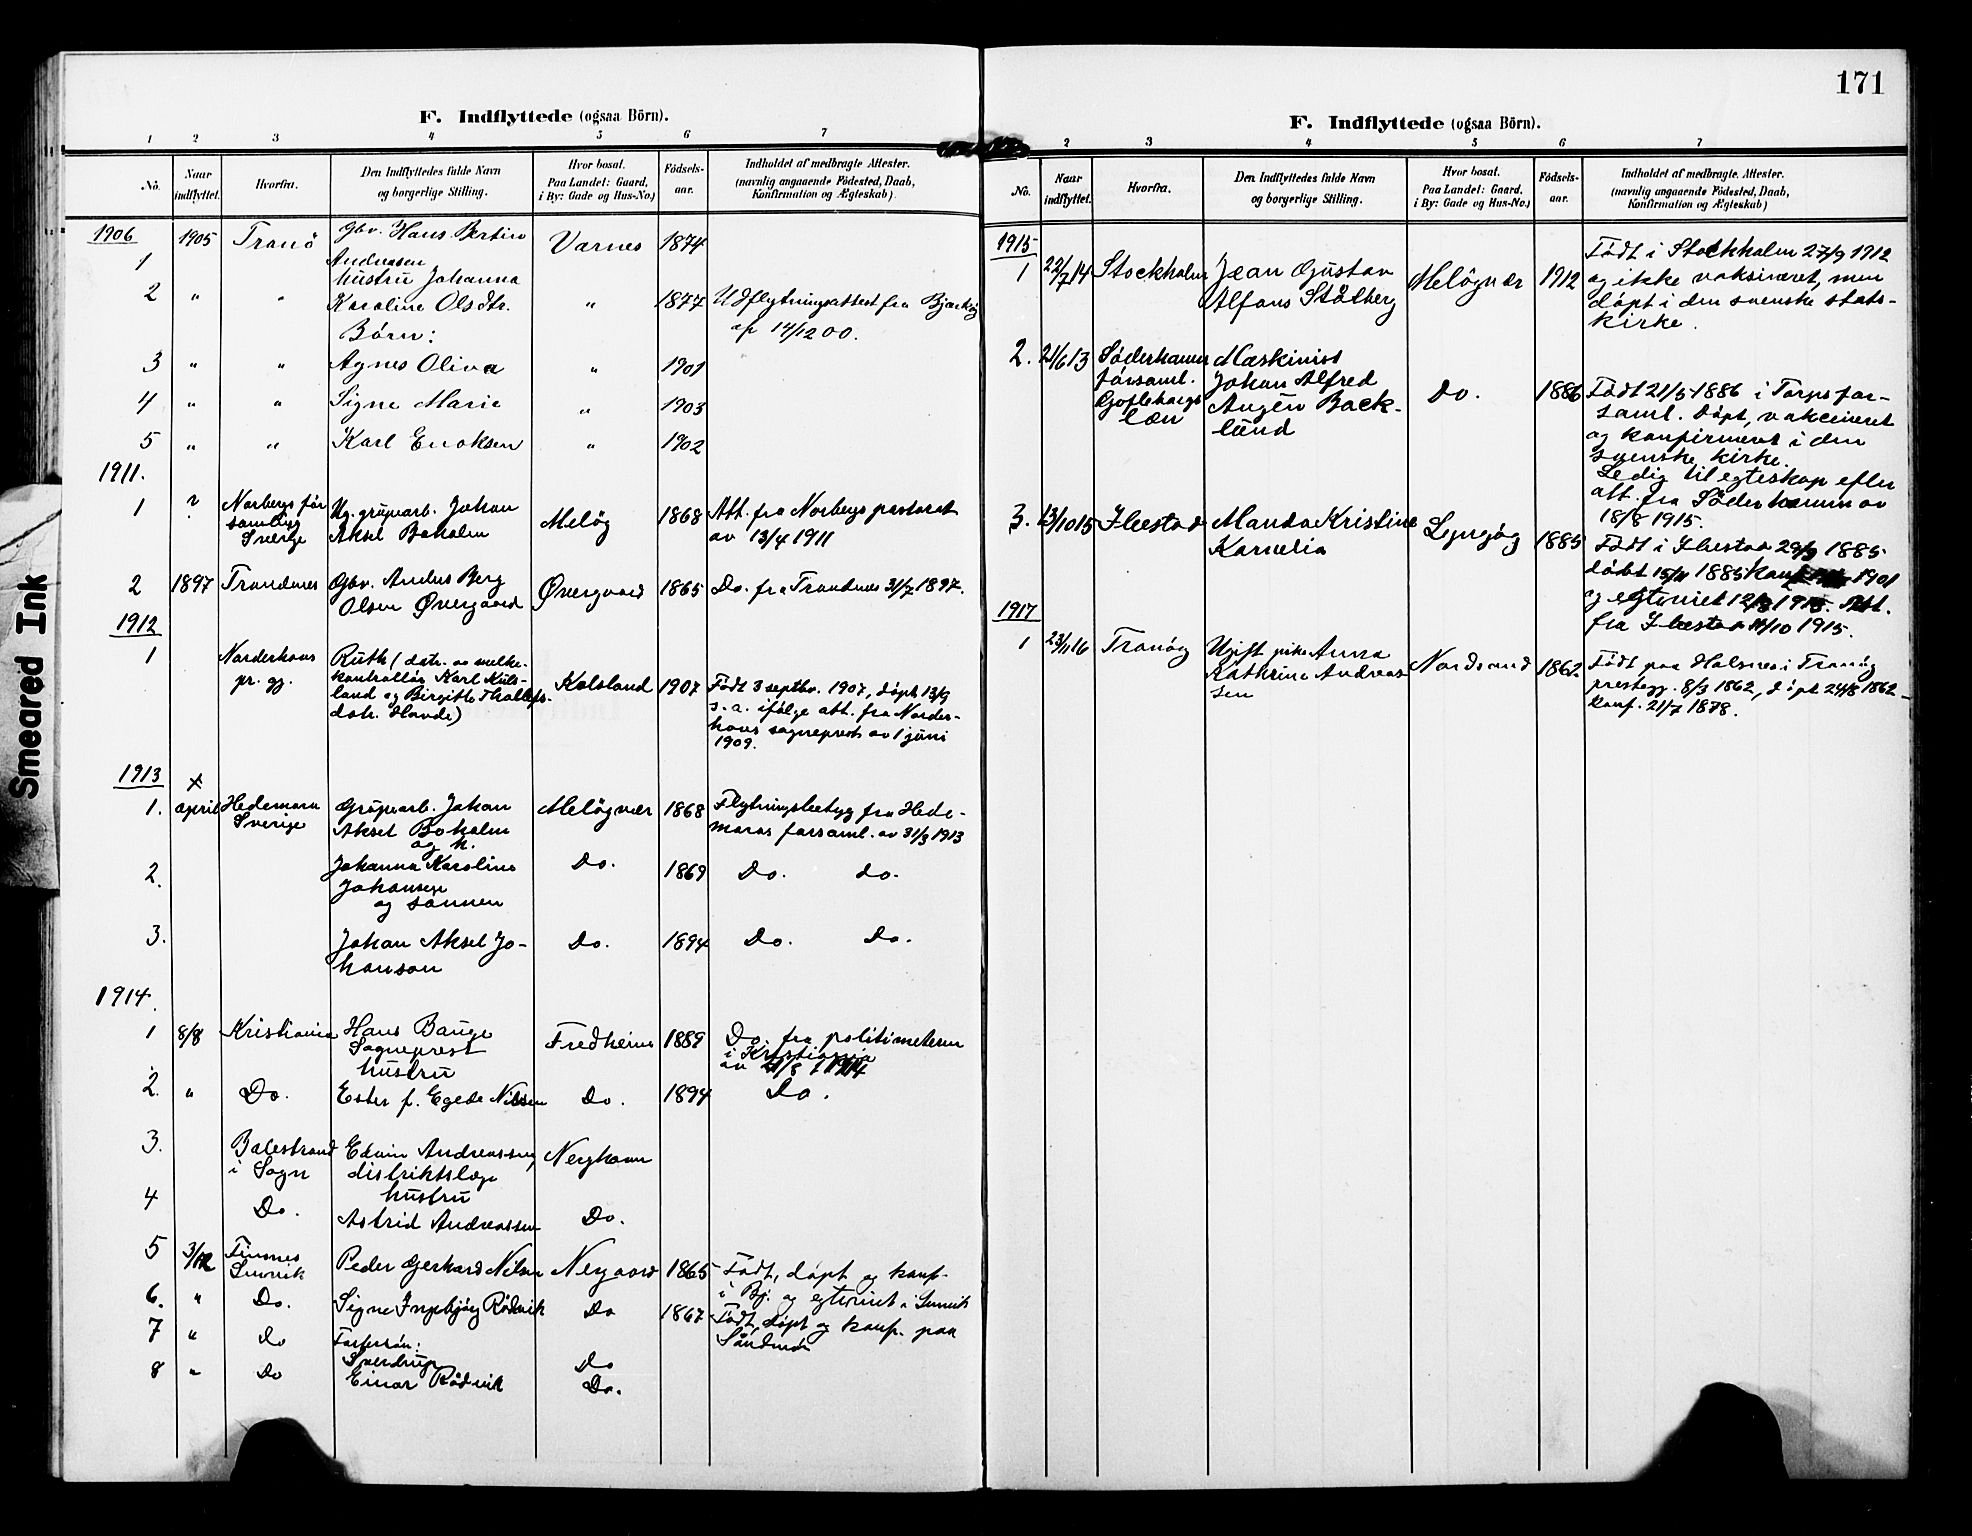 171
F. Indflyttede (ogsaa Börn).
1 2 3 4 5 6 7
No. Naar indflyttet. Hvorfra. Den Indflyttedes fulde Navn og borgerlige Stilling. Hvor bosat. Paa Landet: Gaard, i By: Gade og Hus-No.) Födsels-aar. Indholdet af medbragte Attester. (navnlig angaaende Födested, Daab, Konfirmation og Ægteskab)
1906
1 1905 Tranö Gbr. Hans Bertin Varnes 1874
Andreasen
hustru Johanna
2 " " Karoline Olsdtr. " 1877 Udflytningsattest fra Bjarkøy
af 14/12 00.
Børn:
3 " " Agnes Oliva " 1901
4 " " Signe Marie " 1903
5 " " Karl Enoksen " 1902
1911.
1 ? Norbergs för Ug. grubearb. Johan Meløy 1868 Att. fra Norbergs pastorat
samling Aksel Boholm av 13/4 1911
Sverige
2 1897 Trondenes Gbr. Anders Berg Øvergaard 1865 Do. fra Trondenes 31/7 1897.
Olsen Øvergaard
1912
1 Norderhovs Ruth (datr. av melke- Kolsland 1907 Født 3 septbr. 1907, døpt 13/9
pr. gj. kontrollør Karl Kuls- s. a. ifølge att. fra Norder-
land og Birgitte Thollefs- hovs sogneprest av 1 juni
datr. Hovde) 1909.
1913
x
1. april Hedemora Grubearb. Johan Meløyvær 1868 Flytningsbetyg fra Hede-
Sverige Aksel Boholm moras forsaml. av 31/3 1913
og h.
2. Johanna Karolina Do. 1869 Do. do.
Johansen
og sønnen
3. Johan Aksel Jo- Do. 1894 Do. Do.
hanson
1914.
1 8/8 Kristiania Hans Bauge Fredheim 1889 Do. fra politimesteren
Sogneprest i Kristiania
hustru av /8 1914
2. " Do. Ester f. Egede Nilssen Do. 1894 Do.
3. Balestrand Edvin Andreassen Nerghamn
i Sogn distriktslæge
hustru
4 Do. Astrid Andreassen Do.
5 3/12 Finsnes Peder Gerhard Nilsen Nergaard 1865 Født, døpt og konf.
Lenvik i Bj. og egteviet i Lenvik
6. " Do. Signe Ingebjørg Rødvik Do 1867 Født, døpt og konf. paa
Søndmør
7 " Do Fostersøn:
Sverdrup Do
8 " Do Einar Rødvik Do.
F. Indflyttede (ogsaa Börn).
2 3 4 5 6 7
No. Naar indflyttet. Hvorfra. Den Indflyttedes fulde Navn og borgerlige Stilling. Hvor bosat. Paa Landet: Gaard, i By: Gade og Hus-No.) Födsels-aar. Indholdet af medbragte Attester. (navnlig angaaende Födested, Daab, Konfirmation og Ægteskab)
1915
1 22/7 14 Stockholm Jean Gustav Meløyvær 1912 Født i Stockholm 27/9 1912
Alfons Stålberg og ikke vaksineret, men
døpt i den svenske stats-
kirke.
2. 21/6 13 Söderhamn Maskinist
församl. Johan Alfred Do. 1886 Født 21/5 1886 i Torps for-
Gefleborgs Angén Back- saml. døpt, vakcineret
læn lund og konfirmert i den
svenske kirke.
Ledig til egteskap efter
att. fra Söderhamn av
18/8 1915.
3. 13/10 15 Ibestad Manda Kristine Lemføy 1885 Født i Ibestad 29/9 1885
Kornelia døbt 15/11 1885 konf 1901
og egteviet 12/9 1915. Att.
fra Ibestad 11/10 1915.
1917
1 23/11 16 Tranøy Ugift pike Anna Nordsand 1862 Født paa Holsnes i Tranøy
Kathrine Andreas- prestegj. 8/3 1862, døpt 24/8 1862-
sen konf. 21/7 1878.
Smeared Ink